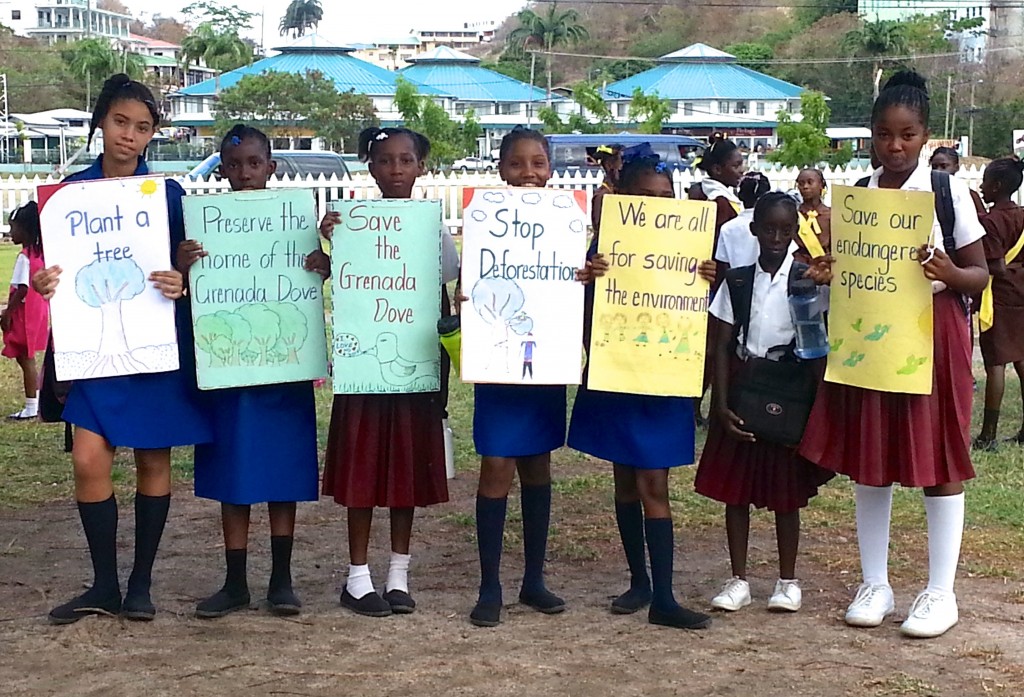 Plant a
tree
Preserve the
home of the
Grenada Dove
Save
the
Grenada
Dove
Stop
Deforestation
We are all
for saving
the environment
Save our
endangered
species